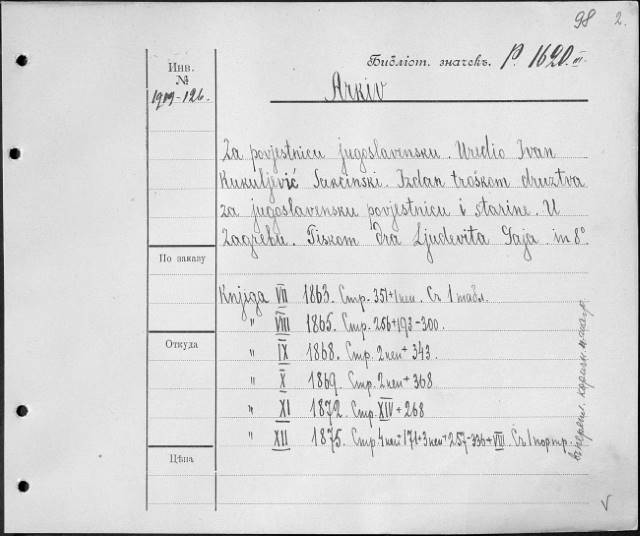 98 2.
Инв. №
1909-126.
Библіот. значекъ. P. 1620.III
Arkiv
Za povjestnicu jugoslavensku. Uredio Ivan
Kukuljević Sakcinski. Izdan troškom družtva
za jugoslavensku povjestnicu i starine. U
Zagrebu. Tiskom dra Ljudevita Gaja. in 8°
По заказу
Knjiga VII 1863. Стр. 351+1 нен. Съ 1 табл.
" VIII 1865. Стр. 256+193-300.
Откуда
" IX 1868. Стр. 2 нен + 343.
" X 1869. Стр. 2 нен + 368
" XI 1872. Стр. XIV + 268
" XII 1875. Стр. 4 нен+171+3 нен+257-336+VIII. Съ 1 портр.
Цѣна
въ перепл. коричн.
V